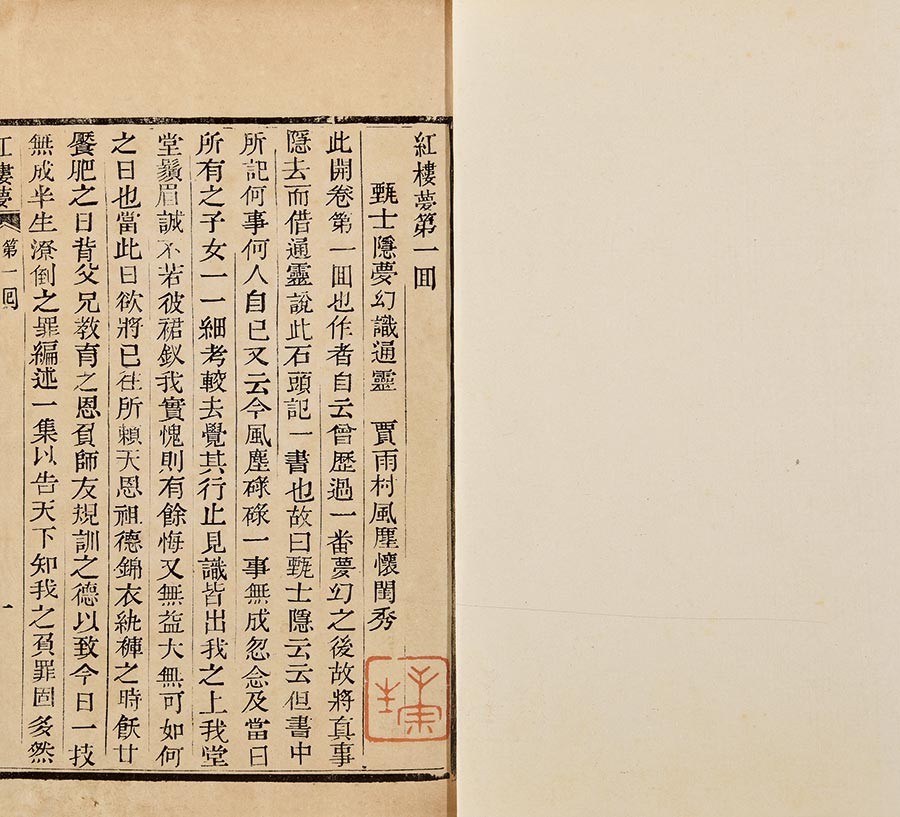 紅樓夢第一囬
甄士隱夢幻識通靈　賈雨村風塵懷閨秀
此開卷第一囬也作者自云曾歷過一番夢幻之後故將真事
隱去而借通靈說此石頭記一書也故曰甄士隱云云但書中
所記何事何人自己又云今風塵碌碌一事無成忽念及當日
所有之子女一一細考較去覺其行止見識皆出我之上我堂
堂鬚眉誠不若彼裙釵我實愧則有餘悔又無益大無可如何
之日也當此日欲將已徃所賴天恩祖德錦衣紈褲之時飫甘
饜肥之日背父兄教育之恩負師友規訓之德以致今日一技
無成半生潦倒之罪編述一集以告天下知我之負罪固多然
紅樓夢
第一囘
一